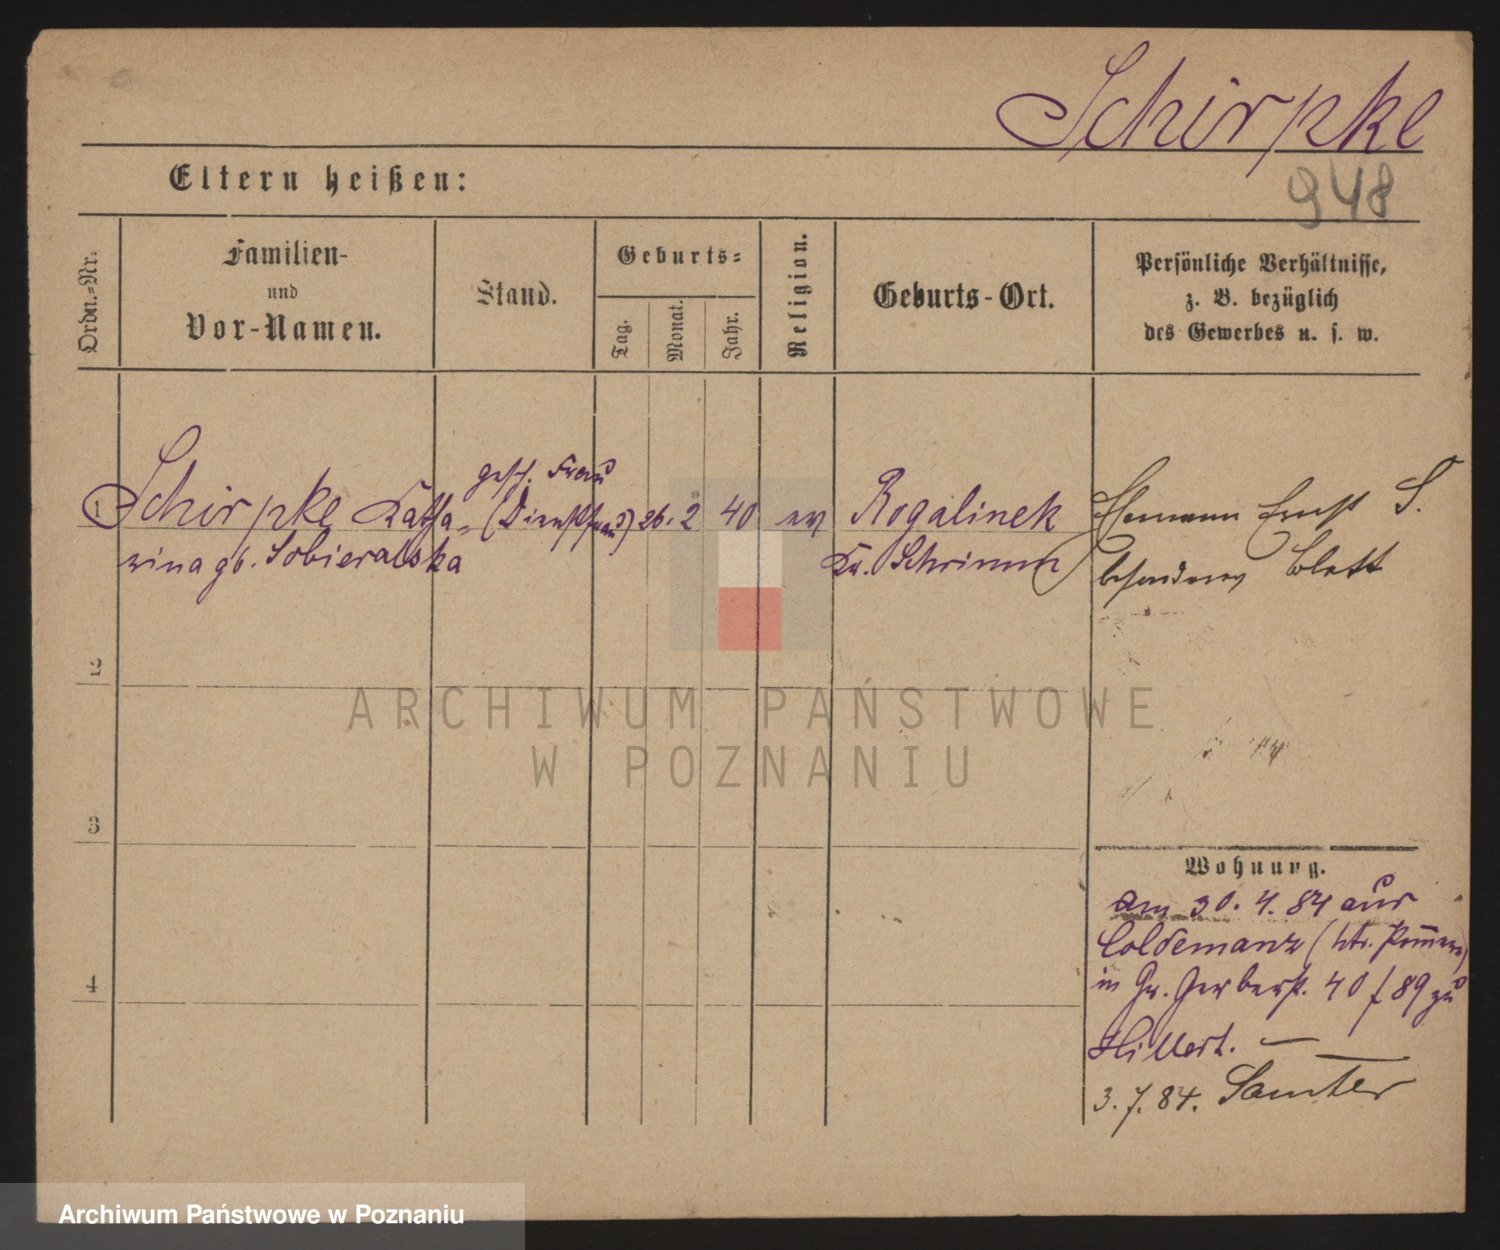 Schirpke
948
Eltern heißen:
Ordn.=Nr.
Familien-
und
Vor-Namen.
Stand.
Geburts=
Tag.
Monat.
Jahr.
Religion.
Geburts-Ort.
Persönliche Verhältnisse,
z. B. bezüglich
des Gewerbes u. s. w.
1
Schirpke Katha-
rina gb. Sobieralska
gesch. Frau
(Dienstfrau)
26. 2 40 ev
Rogalinek
Kr. Schrimm
Ehemann Ernst S.
besonderes Blatt
2
3
4
Wohnung.
am 30. 4. 84 aus
Coldemanz
in Gr. Gerberst. 40 f 89 zu
Hillert. —
3. 7. 84. Samter
ARCHIWUM PAŃSTWOWE
W POZNANIU
Archiwum Państwowe w Poznaniu